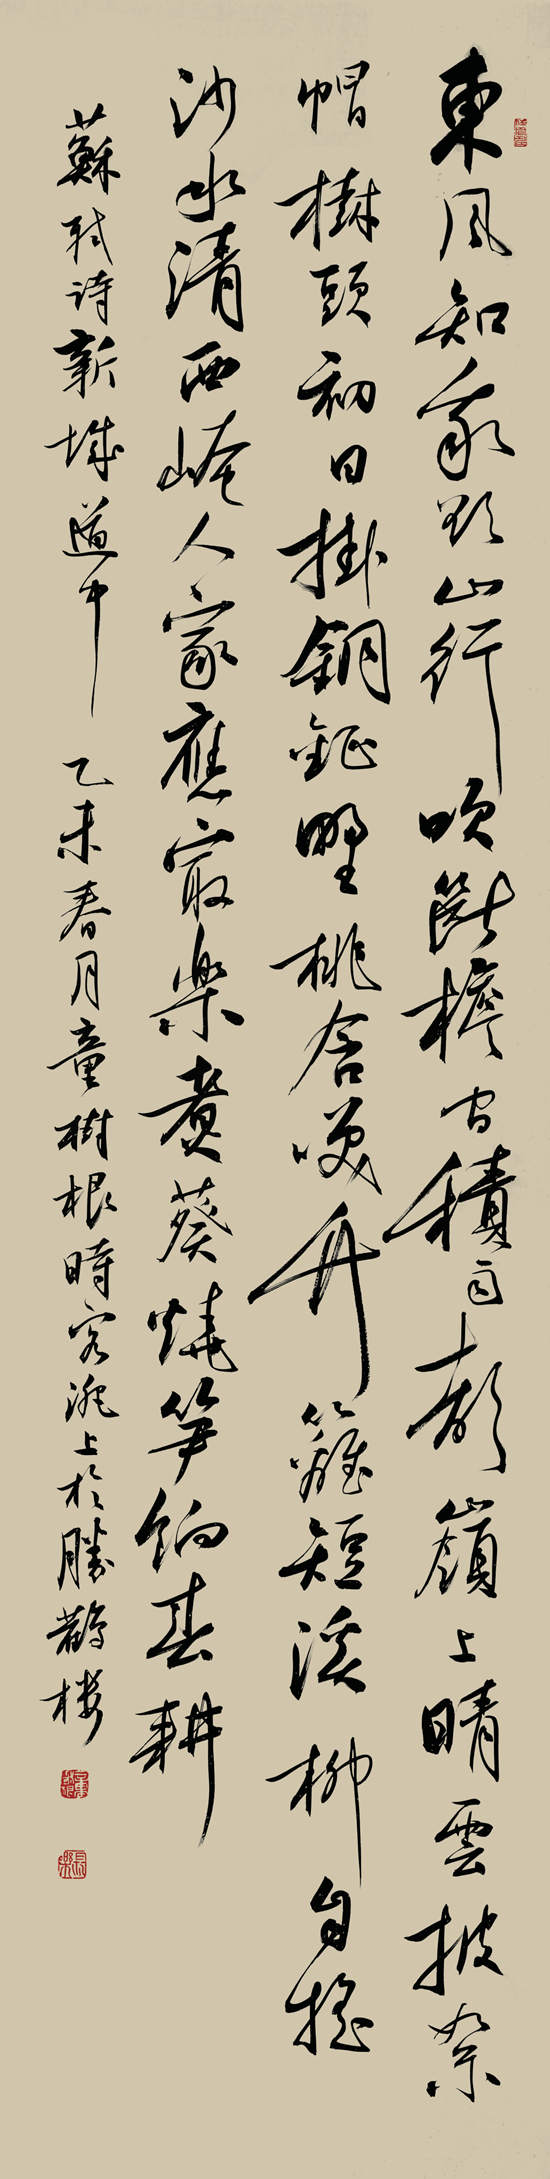 東風知我欲山行吹斷檐間積雨聲嶺上晴雲披絮
帽樹頭初日掛銅鉦野桃含笑竹籬短溪柳自搖
沙水清西崦人家應最樂煮葵燒笋餉春耕
蘇軾诗新城道中 乙未春月童樹根時客淝上於勝鹊楼